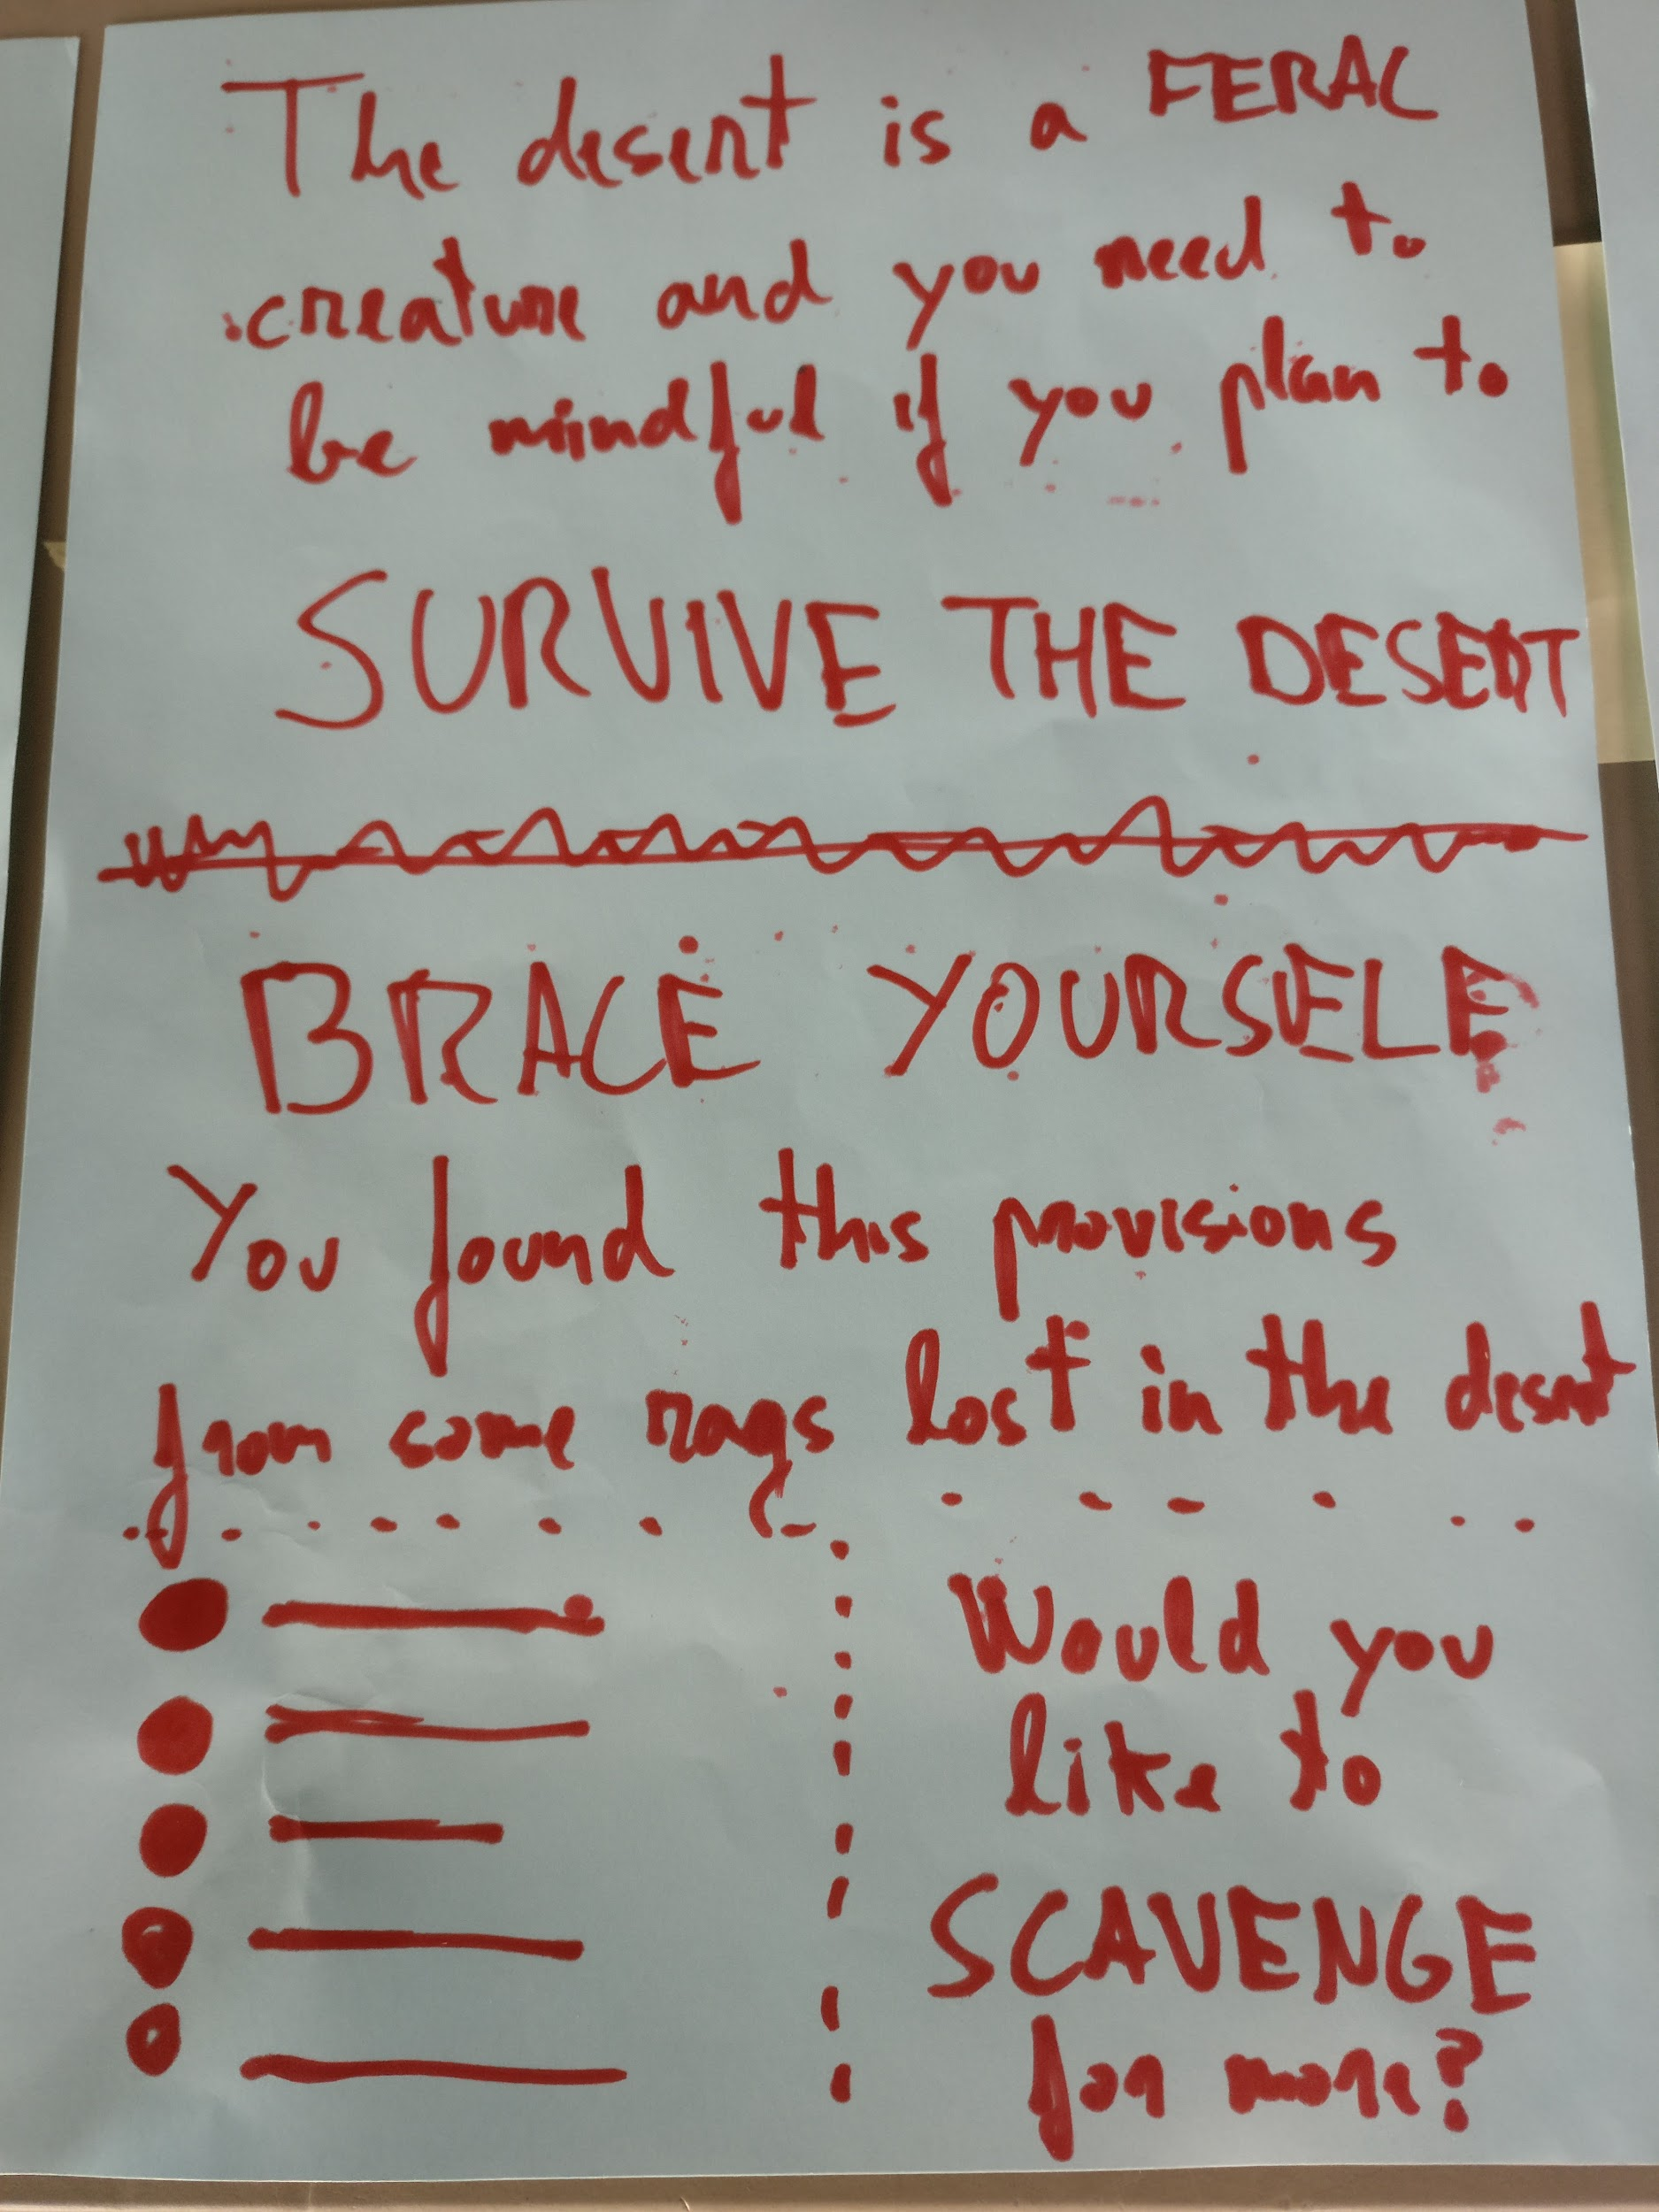 The desert is a FERAL
creature and you need to
be mindful if you plan to
SURVIVE THE DESERT
BRACE YOURSELF
You found this provisions
from some rags lost in the desert
Would you
like to
SCAVENGE
for more?